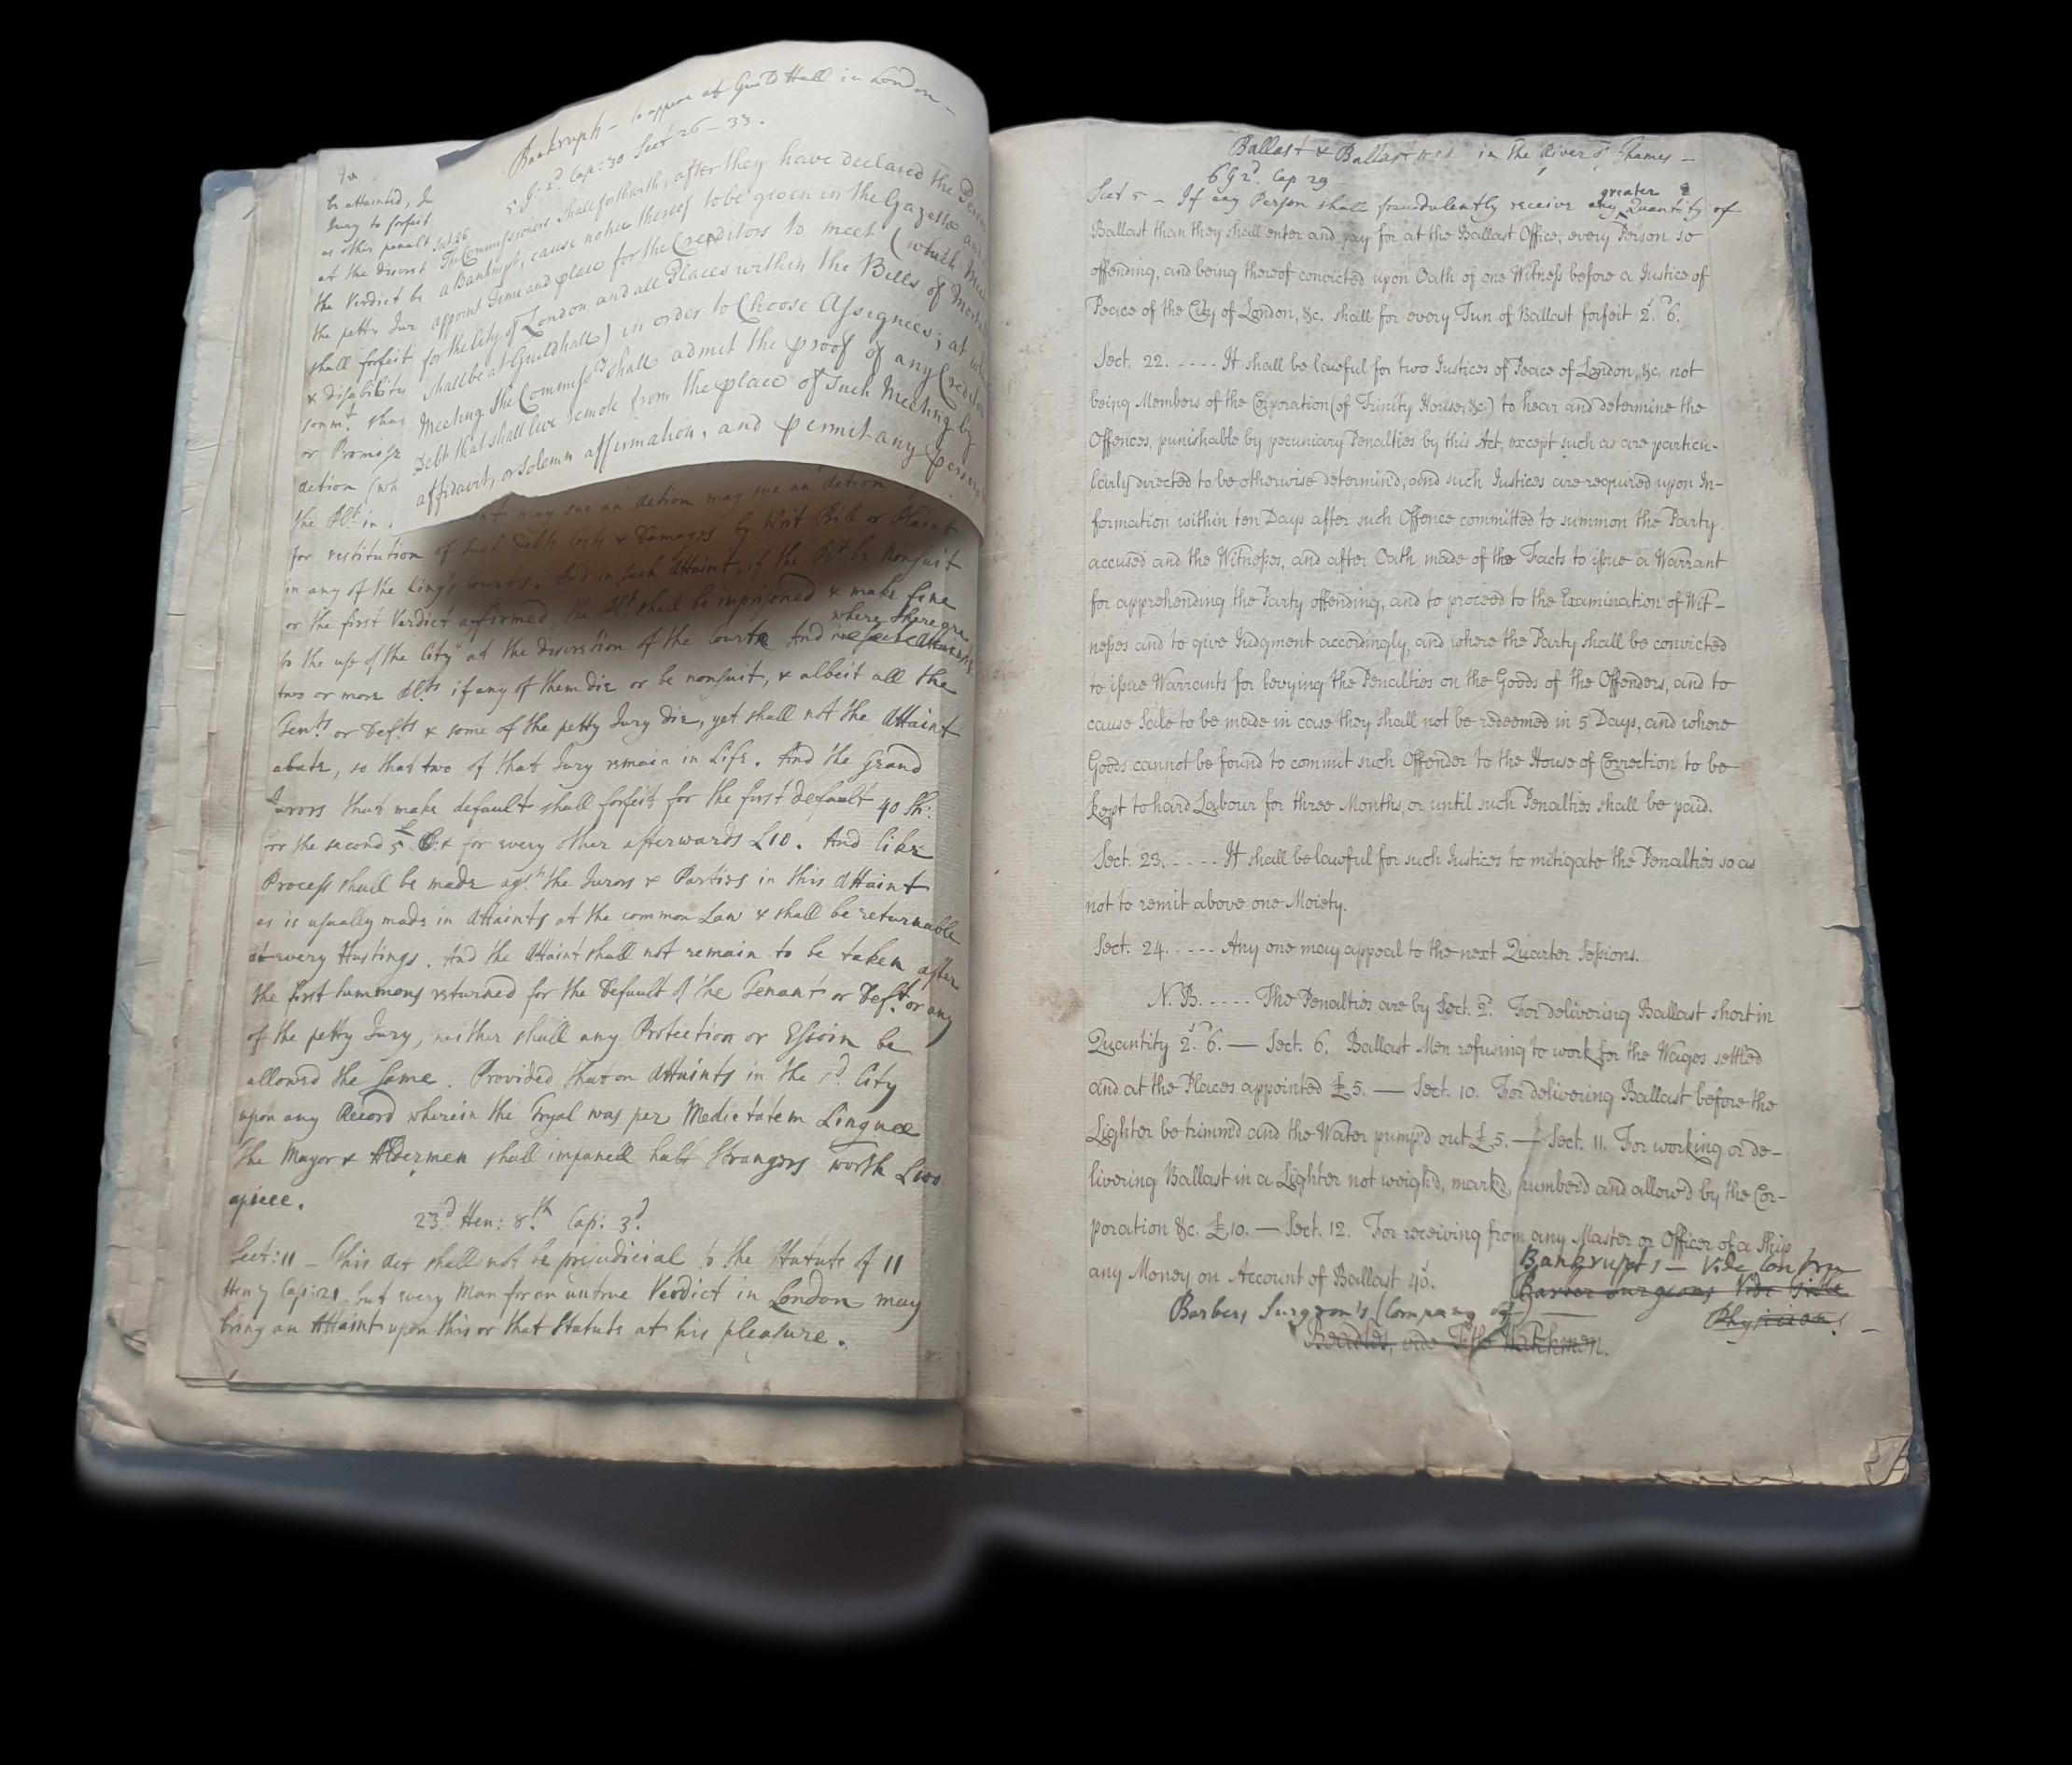 Bankrupts – to appear at Guild Hall in London –
5 G: 2d. Cap: 30 Sect 26 – 33.
Sect 26
The Commissioners shall forthwith, after they have declared the Person
a Bankrupt, cause notice thereof to be given in the Gazette and
appoint time and place for the Creditors to meet (which Mee
for the City of London and all Places within the Bills of Mortal
shall be at Guildhall) in order to Choose Assignees; at wh
Meeting the Commissrs. shall admit the proof of any Creditor
Debt that shall live remote from the place of such Meeting by
affidavit, or solemn affirmation, and permit any person
be attainted,
Jury to forfeit
as other penalt
at the discret
the Verdict be
the petty Jur
shall forfeit
& disability
somt. thus
or Promise
detion (wh
the Plt. in may sue an detion may sue an detion
for restitution of such Debts Costs & Damages by Writ Bill or Plaint
in any of the King's Courts. And in such Attaint, if the Plt. be Nonsuit
or the first Verdict affirmed, the Plt. shall be imprisoned & make fine
to the use of the City at the discretion of the Court And where there are
two or more Plts. if any of them die or be nonsuit, & albeit all the
Tents. or Defts. & some of the petty Jury die, yet shall not the Attaint
abate, so that two of that Jury remain in Life. And the Grand
Jurors that make default shall forfeit for the first default 40 sh:
for the second £5 & for every other afterwards £10. And like
Process shall be made agst. the Jurors & Parties in this Attaint
as is usually made in Attaints at the common Law & shall be returnable
at every Hustings. And the Attaint shall not remain to be taken after
the first summons returned for the Default of the Tenant or Deft. or any
of the petty Jury, neither shall any Protection or Essoin be
allowed the same. Provided that on Attaints in the sd. City
upon any Record wherein the Tryal was per Medietatem Linguæ
the Mayor & Aldermen shall impanell half Strangers worth £100
apiece.
23d. Hen: 8th. Cap: 3d.
Sect: 11 – This Act shall not be prejudicial to the Statute of 11
Hen 7 Cap: 21 but every Man for an untrue Verdict in London may
bring an Attaint upon this or that Statute at his pleasure.
Ballast & Ballast in the River of Thames –
6 G 2d. Cap 29
Sect 5 – If any Person shall fraudulently receive any greater Quantity of
Ballast than they shall enter and pay for at the Ballast Office, every Person so
offending, and being thereof convicted upon Oath of one Witness before a Justice of
Peace of the City of London, &c. shall for every Tun of Ballast forfeit 2s. 6d.
Sect. 22. ---- It shall be lawful for two Justices of Peace of London, &c. not
being Members of the Corporation (of Trinity House, &c.) to hear and determine the
Offences, punishable by pecuniary Penalties by this Act, except such as are particu-
larly directed to be otherwise determind, and such Justices are required upon In-
formation within ten Days after such Offence committed to summon the Party
accused and the Witnesses, and after Oath made of the Facts to issue a Warrant
for apprehending the Party offending, and to proceed to the Examination of Wit-
nesses and to give Judgment accordingly, and where the Party shall be convicted
to issue Warrants for levying the Penalties on the Goods of the Offenders, and to
cause Sale to be made in case they shall not be redeemed in 5 Days, and where
Goods cannot be found to commit such Offender to the House of Correction to be
kept to hard Labour for three Months, or until such Penalties shall be paid.
Sect. 23. ---- It shall be lawful for such Justices to mitigate the Penalties so as
not to remit above one Moiety.
Sect. 24. ---- Any one may appeal to the next Quarter Sessions.
N. B. ---- The Penalties are by Sect. 2d. For delivering Ballast short in
Quantity 2s. 6d. — Sect. 6. Ballast Men refusing to work for the Wages settled
and at the Places appointed £5. — Sect. 10. For delivering Ballast before the
Lighter be trimm'd and the Water pump'd out £5. — Sect. 11. For working or de-
livering Ballast in a Lighter not weigh'd, mark'd, number'd and allow'd by the Cor-
poration &c. £10. — Sect. 12. For receiving from any Master or Officer of a Ship
any Money on Account of Ballast 40s.
Bankrupts – Vide Contra
Barber Surgeons Vide Title
Physicians –
Barbers Surgeon's (Company of) —
Beadles, vide Title Watchmen.